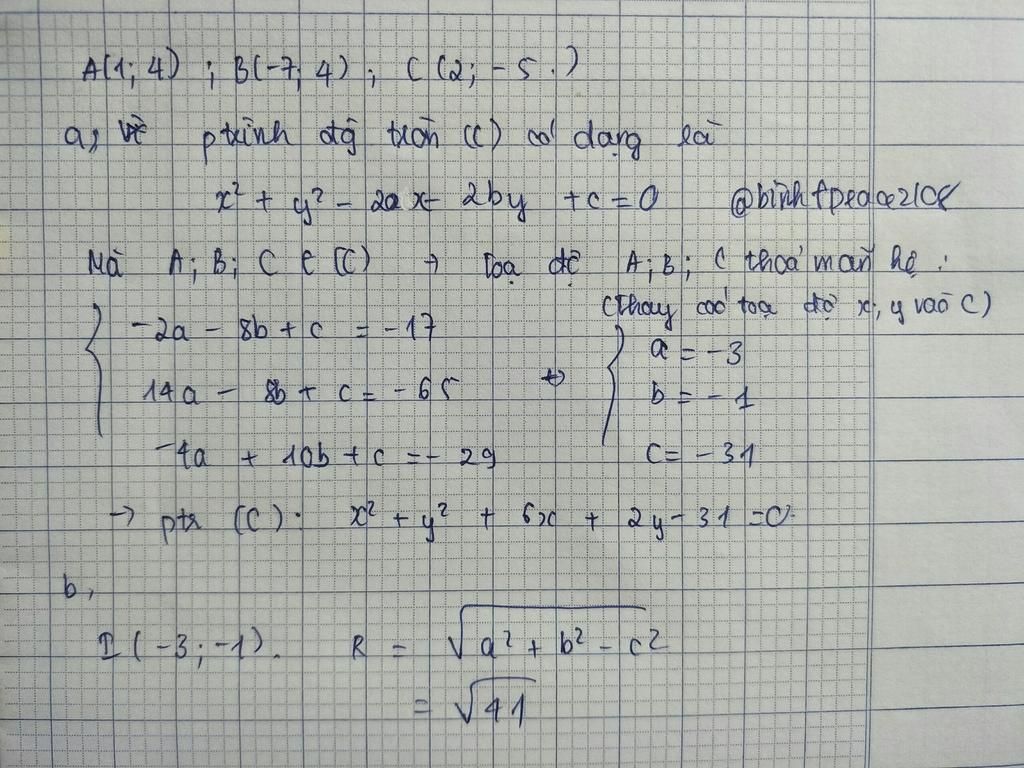 A(1; 4) ; B(-7; 4) ; C (2; -5 .)
a, ptrình đg tròn (C) có dạng là
x² + y² - 2ax - 2by + c = 0 @binhfpeace2108
Mà A; B; C ∈ (C) → toạ độ A; B; C thoả mãn hệ :
(thay các toạ độ x, y vào C)
-2a - 8b + c = -17
14a - 8b + c = -65 ↔
-4a + 10b + c = -29
a = -3
b = -1
c = -31
→ ptr (C): x² + y² + 6x + 2y - 31 = 0.
b,
I (-3; -1). R = √a² + b² - c²
= √41